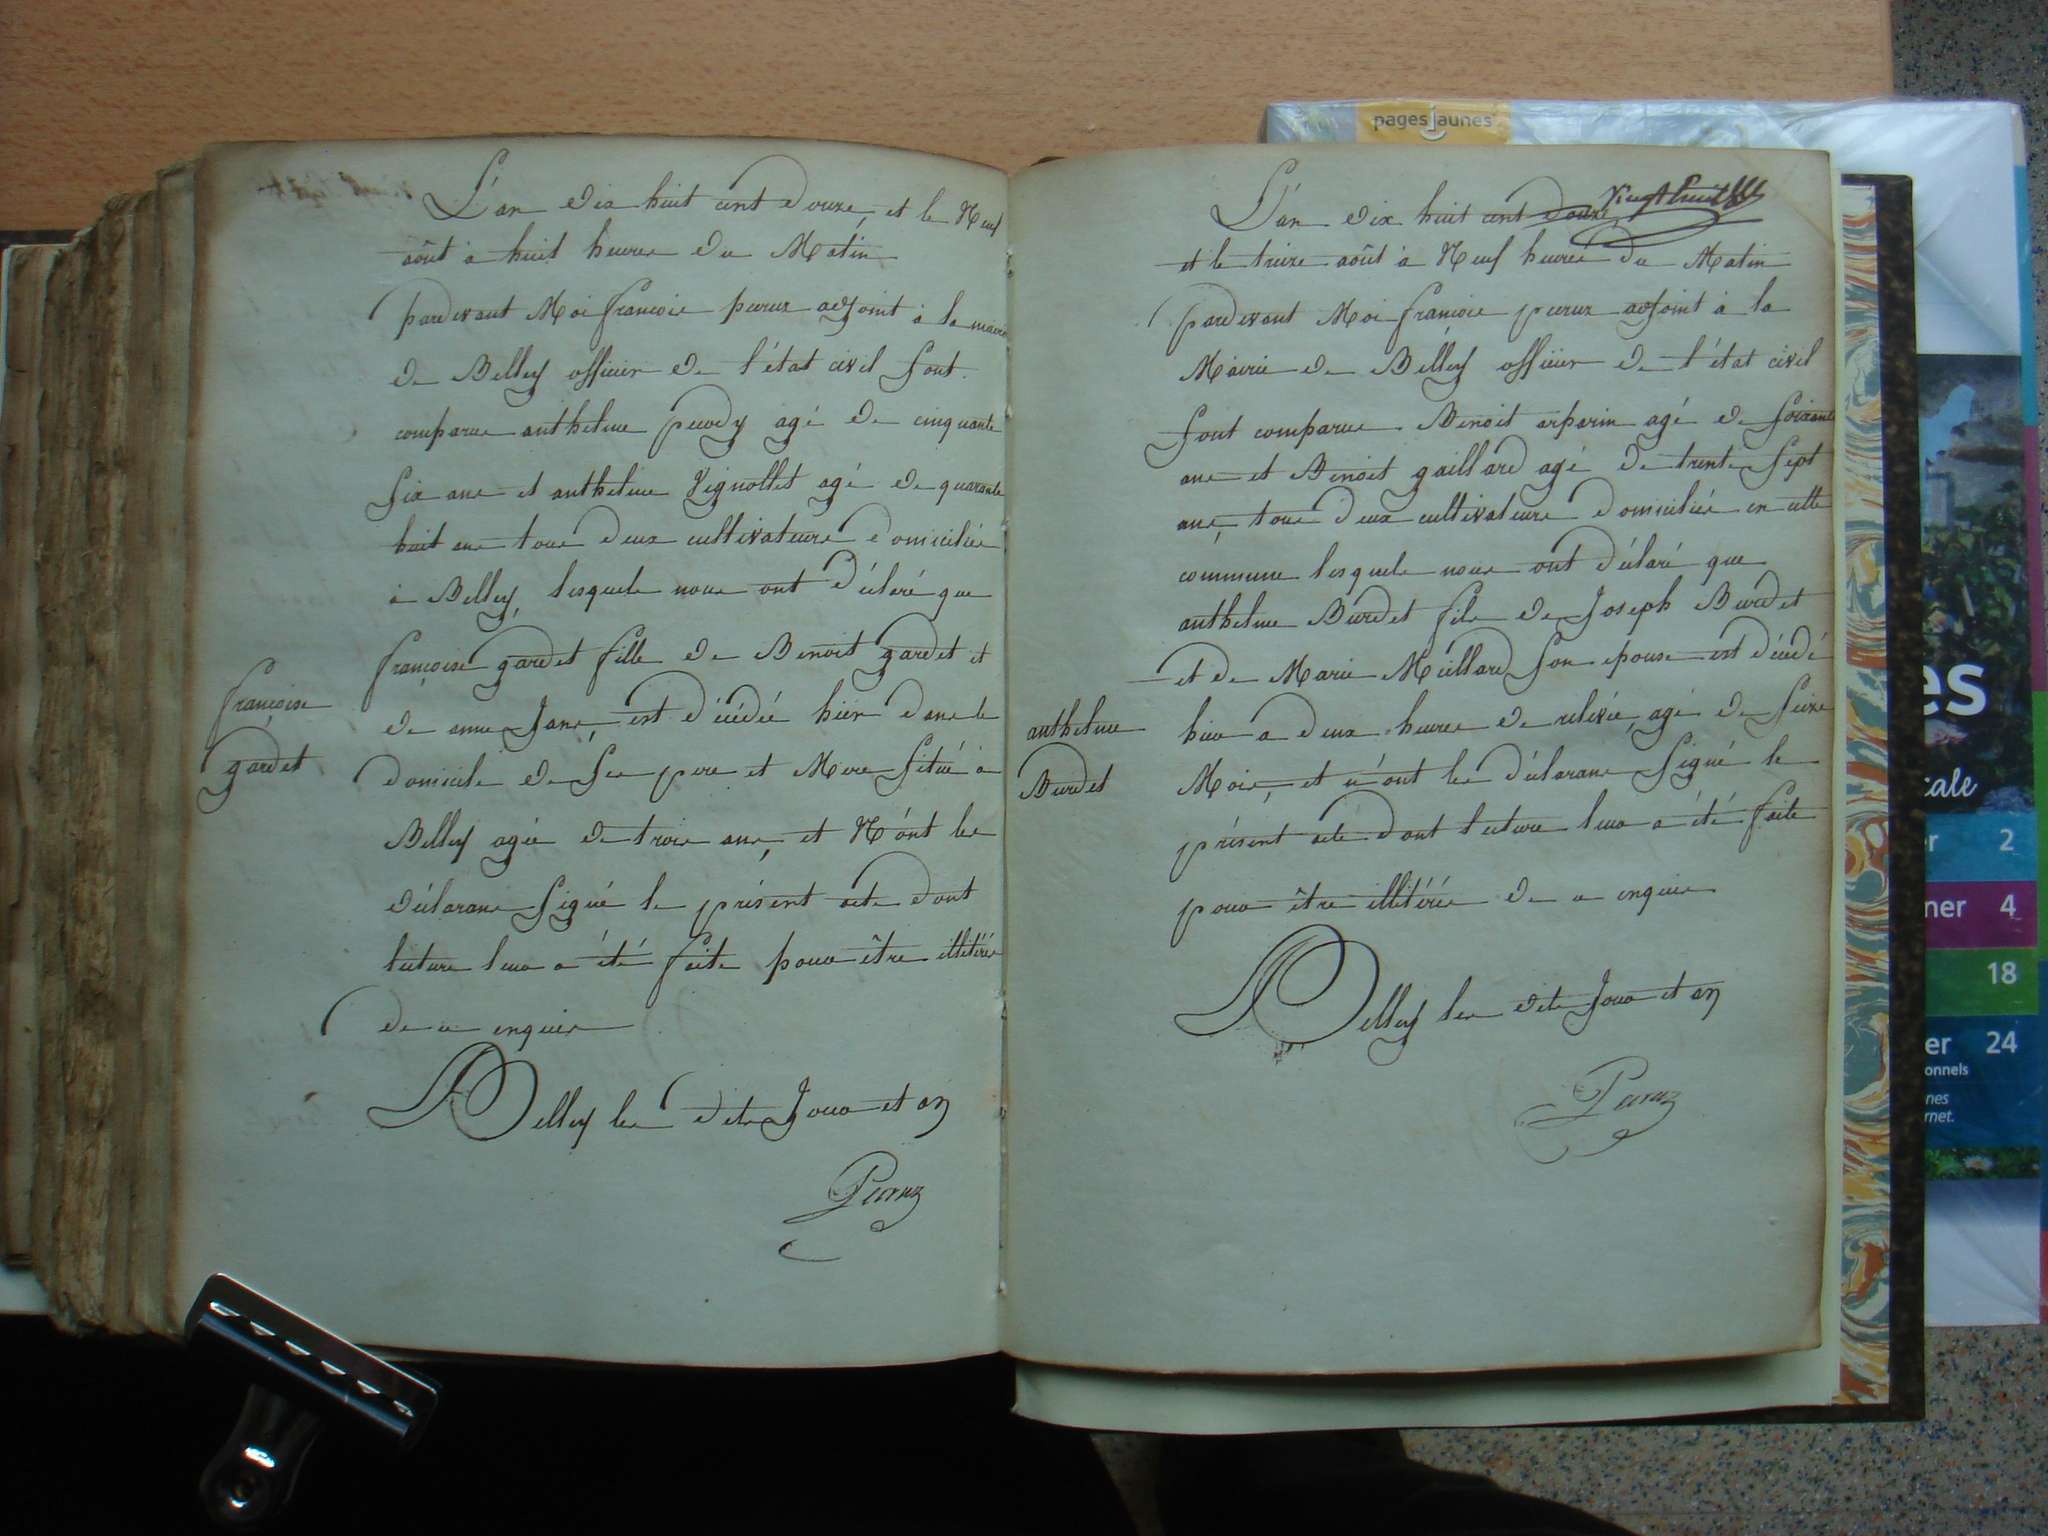 L'an dix huit cent douze, et le Neuf
août à huit heures du Matin
pardevant Moi françois peeruz adjoint à la mairie
de Belley officier de l'état civil sont
comparus anthelme agé de cinquante
six ans et anthelme Vignollet agé de quarante
huit ans tous deux cultivateurs domiciliés
à Belley, lesquels nous ont déclaré que
françoise gardet fille de Benoit gardet et
de anne Jane, est décédée hier dans le
domicile de ses pere et Mere situé à
Belley agée de trois ans, et N'ont les
déclarans signé le présent acte dont
lecture leur a été faite pour être illitérés
de ce enquis
Belley les dits Jour et an
françoise
gardet
Vingt huit
L'an dix huit cent douze
et le treize août à Neuf heures du Matin
pardevant Moi françois peeruz adjoint à la
Mairie de Belley officier de l'état civil
sont comparus Benoit arparin agé de soixante
ans et Benoit gaillard agé de trente sept
ans, tous deux cultivateurs domiciliés en cette
commune lesquels nous ont déclaré que
anthelme Burdet fils de Joseph Burdet
et de Marie Meillard son épouse est décédé
hier à deux heures de relevée, agé de seize
Mois, et n'ont les déclarans signé le
présent acte dont lecture leur a été faite
pour être illitérés de ce enquis
Belley les dits Jour et an
anthelme
Burdet
pagesjaunes
es
cale
er 2
ner 4
18
er 24
onnels
nes
rnet.